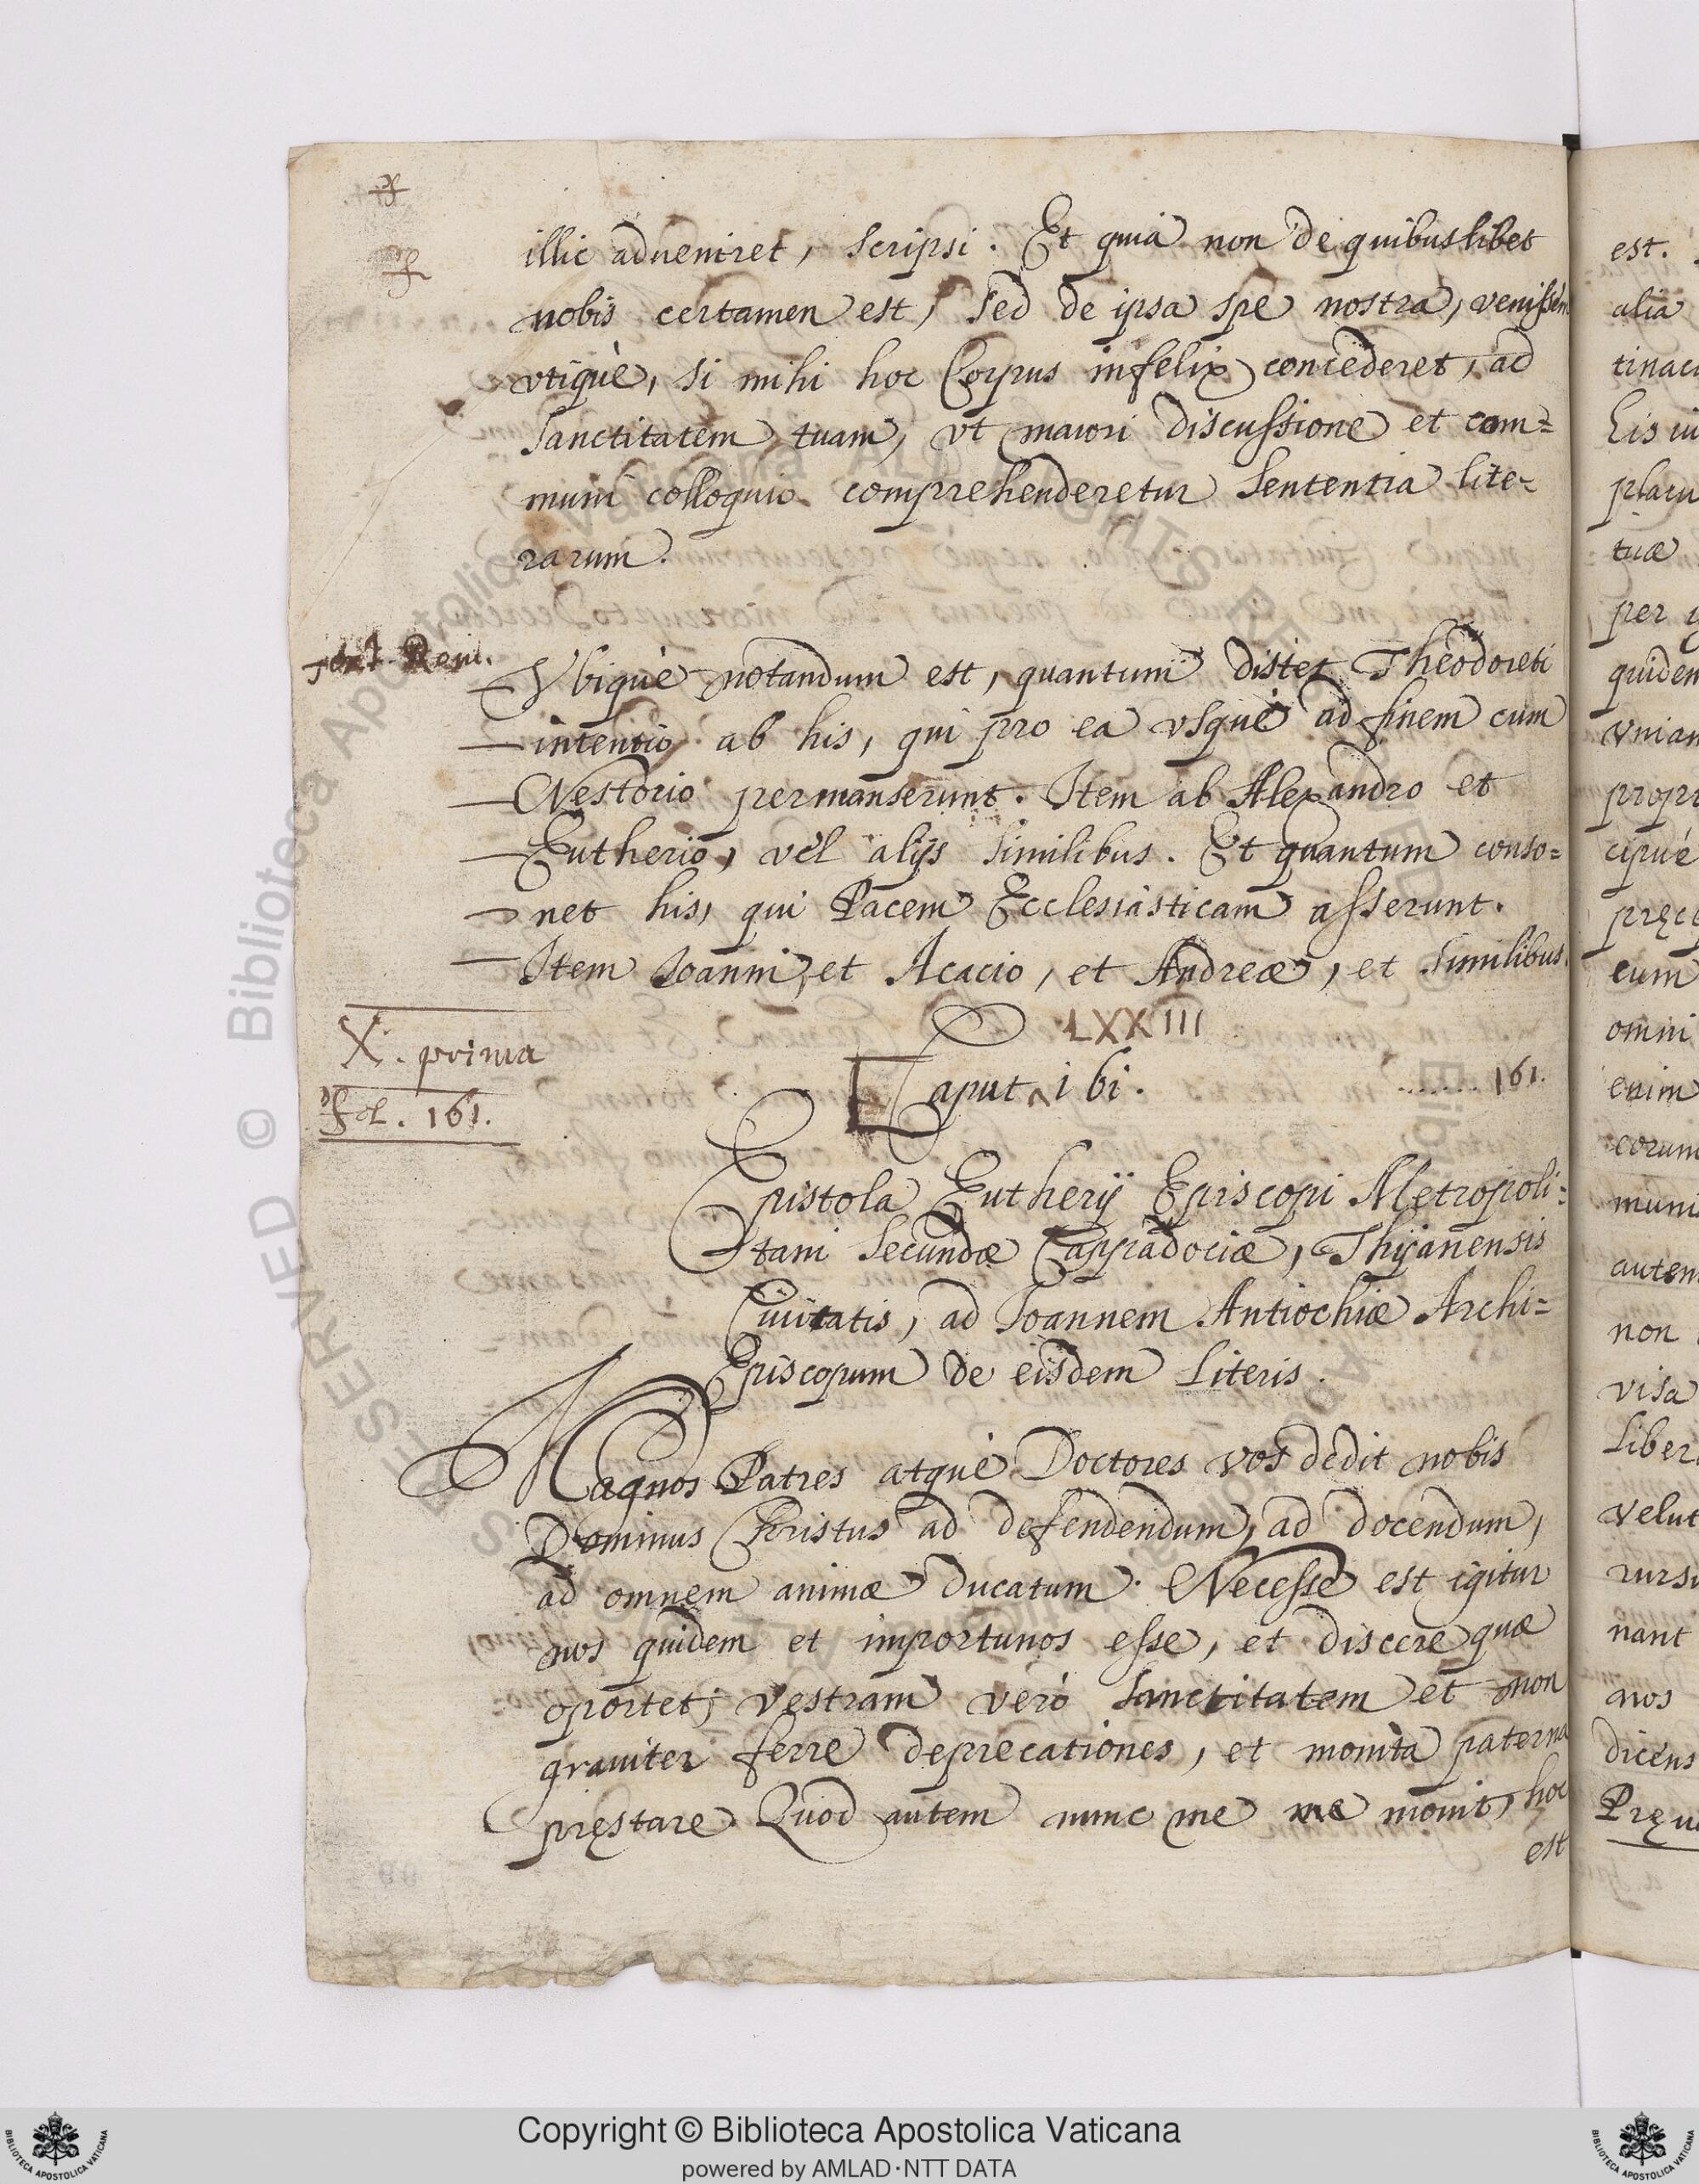 illic adueniret, scripsi. Et quia non de quibuslibet
nobis certamen est, sed de ipsa spe nostra, venissem
vtiquè, si mihi hoc Corpus infelix concederet, ad
Sanctitatem tuam, vt maiori discussione et com=
muni colloquio comprehenderetur Sententia lite=
rarum.
Vbiquè notandum est, quantum distet Theodoreti
intentio ab his, qui pro ea vsquè ad finem cum
Nestorio permanserunt. Item ab Alexandro et
Eutherio, vel alijs similibus. Et quantum conso=
net his, qui Pacem Ecclesiasticam asserunt.
Item Ioanni, et Acacio, et Andreæ, et Similibus.
LXXIII
X. prima
Caput ibi. ........ 161.
fol. 161.
Epistola Eutherij Episcopi Metropoli=
tani Secundæ Cappadociæ, Thijanensis
Ciuitatis, ad Ioannem Antiochiæ Archi=
Episcopum de eisdem Literis.
Magnos Patres atquè Doctores vos dedit nobis
Dominus Christus ad defendendum, ad docendum,
ad omnem animæ ducatum. Necesse est igitur
nos quidem et importunos esse, et discere quæ
oportet; vestram verò Sanctitatem et non
grauiter ferre deprecationes, et monita paterna
pręstare. Quod autem nunc me me mouit, hoc
est
est.
alia
tinaci
plaru
tuæ
per
quidem
vnian
propr
cipuè
pręci
eum
omni
enim
eorum
muni
autem
non
visa
liber
velut
rursu
nant
nos
dicens
Pręu
Copyright © Biblioteca Apostolica Vaticana
powered by AMLAD·NTT DATA